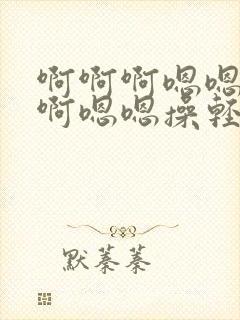 啊啊啊嗯嗯
啊嗯嗯操轻
默蓁蓁